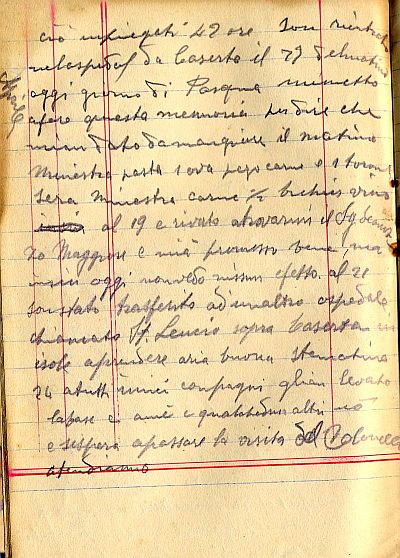 ciò impiegati 42 ore Son rientrato
nelaspedal da Caserta il 23 del matino
oggi giorno di Pasqua mimetto
afare questa memoria perdire che
mian dato damangiare il matino
Aprile
minestra pasta 1 ova pezo carne e 1
sera minestra carne ½ bichiè vino
al 19 e rivato atrovarmi il
Maggiore e mià promesso bene ma
insin oggi nonvedo nissun efetto. al 21
son stato trasferito adunaltro ospedale
chiamato St. Leucio sopra Caserta
aprendere aria buona Stamatina
24 atutti imiei conpagni glian levato
labase e amè e qualchedun altri nò
e sispera apassare la visita del Colonello